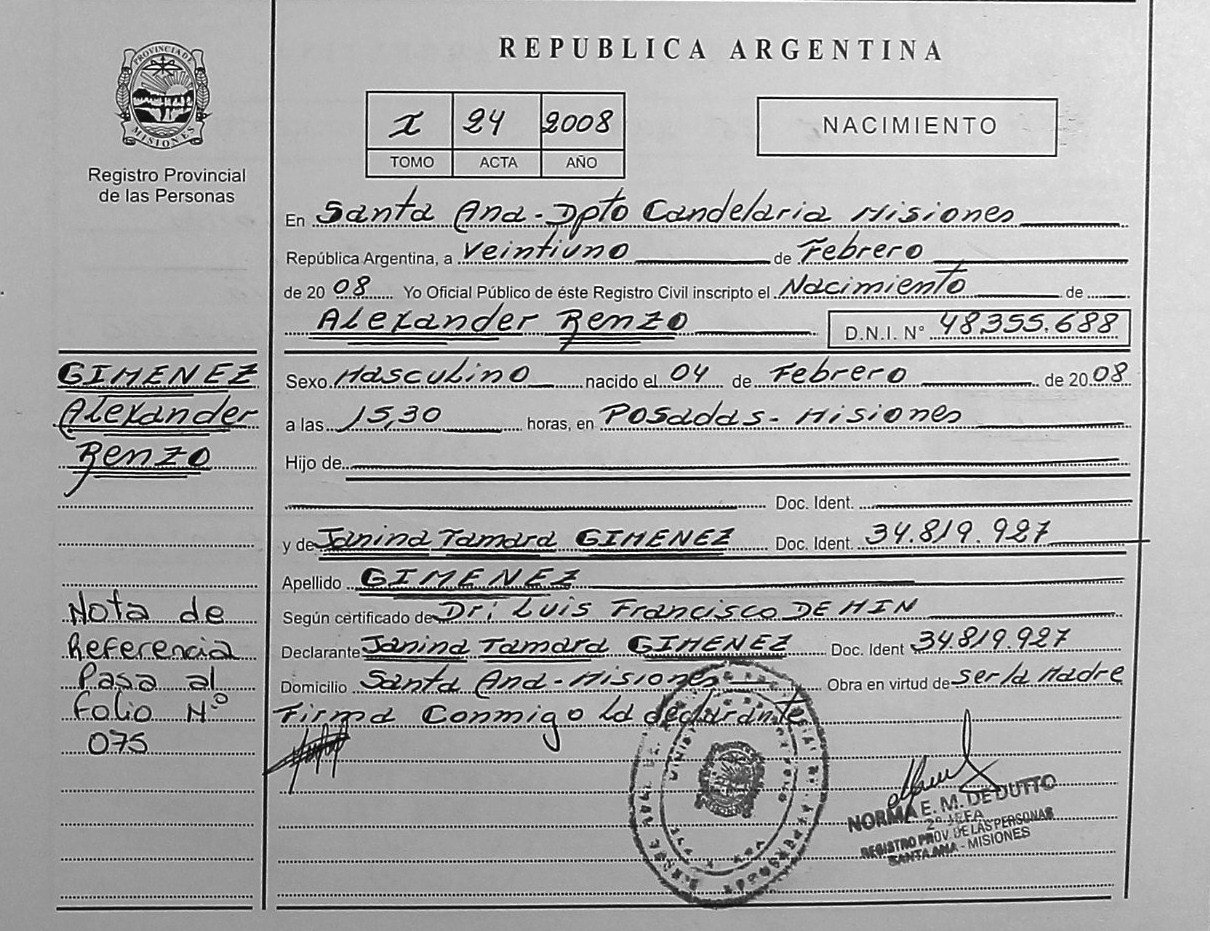 PROVINCIA DE
MISIONES
Registro Provincial
de las Personas
REPUBLICA ARGENTINA
I 24 2008
TOMO ACTA AÑO
NACIMIENTO
En Santa Ana - Dpto Candelaria Misiones
República Argentina, a Veintiuno de Febrero
de 2008 Yo Oficial Público de éste Registro Civil inscripto el Nacimiento de
Alexander Renzo D.N.I. N° 48.355.688
GIMENEZ
Alexander
Renzo
Sexo Masculino nacido el 04 de Febrero de 2008
a las 15,30 horas, en Posadas - Misiones
Hijo de
Doc. Ident.
y de Janina Tamara GIMENEZ Doc. Ident. 34.819.927
Apellido GIMENEZ
Según certificado de Dr: Luis Francisco DEHIN
Declarante Janina Tamara GIMENEZ Doc. Ident 34.819.927
Domicilio Santa Ana - Misiones Obra en virtud de ser la Madre
Firma Conmigo la declarante
Nota de
Referencia
Pasa al
folio Nº
075
NORMA E. M. DE DUTTO
2ª JEFA
REGISTRO PROV. DE LAS PERSONAS
SANTA ANA - MISIONES